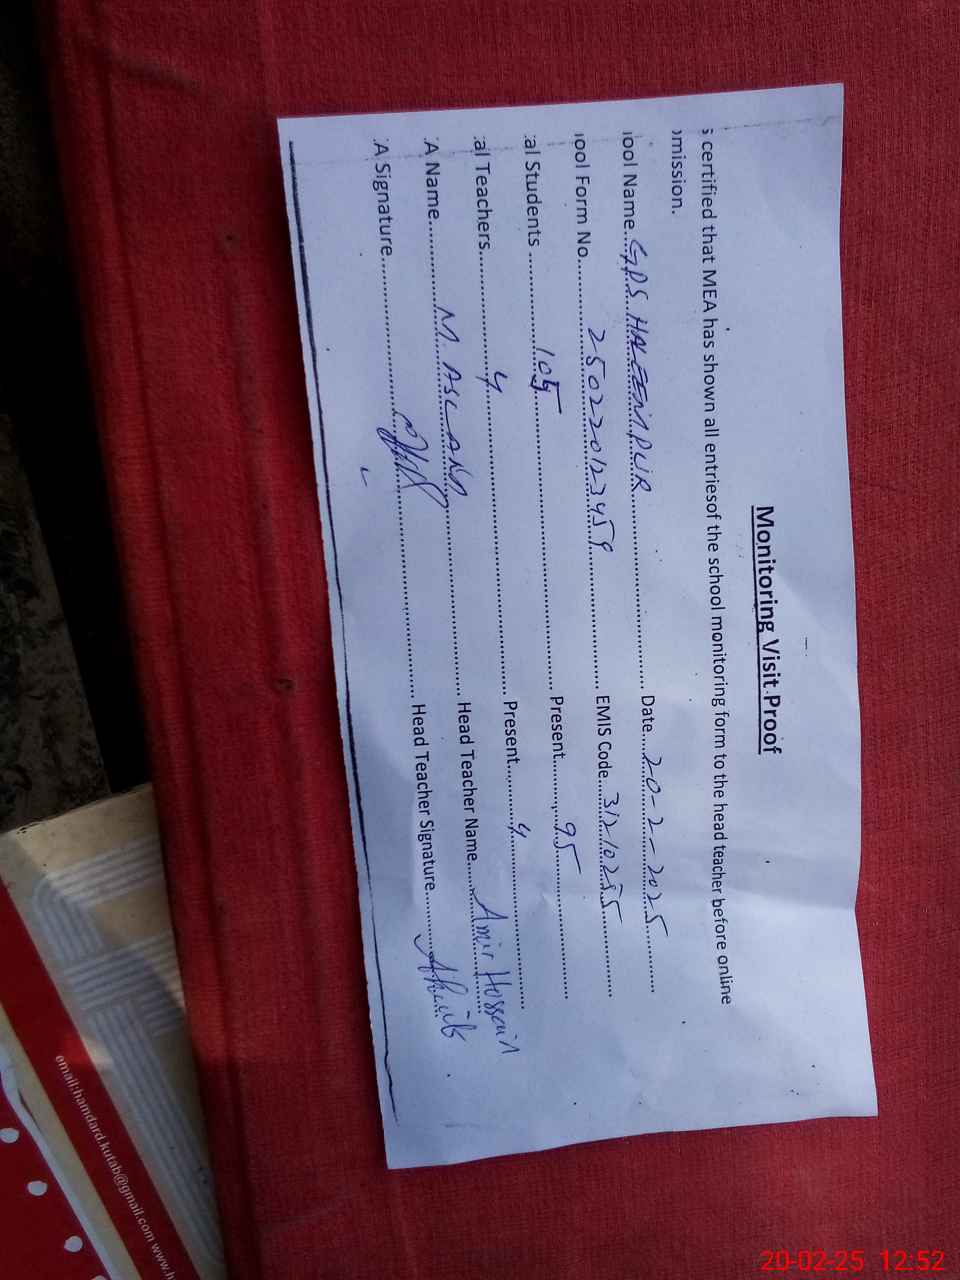 Monitoring Visit Proof
s certified that MEA has shown all entriesof the school monitoring form to the head teacher before online
omission.
ool Name....GPS HALEEMPUR.... Date....20-2-2025....
ool Form No....250220123459.... EMIS Code....31210255....
al Students....105.... Present....95....
al Teachers....4.... Present....4....
A Name....M. ASLAM.... Head Teacher Name....Amir Hussain
A Signature.... Head Teacher Signature....
email:hamdard.kutab@gmail.com www.h
20-02-25 12:52